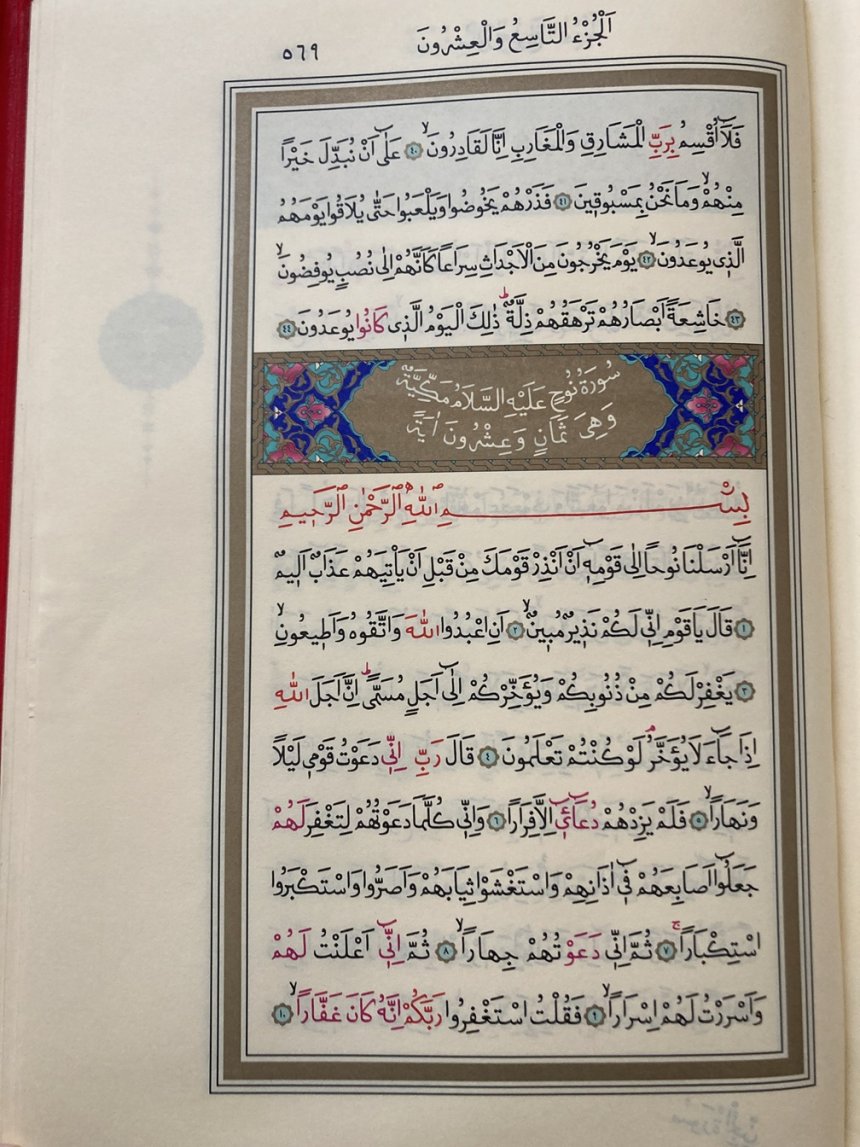 اَلْجُزْءُ التَّاسِعُ وَالْعِشْرُونَ
٥٦٩
فَلَٓا اُقْسِمُ بِرَبِّ الْمَشَارِقِ وَالْمَغَارِبِ اِنَّا لَقَادِرُونَۙ ﴿٤٠﴾ عَلٰٓى اَنْ نُبَدِّلَ خَيْراً
مِنْهُمْۙ وَمَا نَحْنُ بِمَسْبُوقٖينَ ﴿٤١﴾ فَذَرْهُمْ يَخُوضُوا وَيَلْعَبُوا حَتّٰى يُلَاقُوا يَوْمَهُمُ
الَّذٖي يُوعَدُونَۙ ﴿٤٢﴾ يَوْمَ يَخْرُجُونَ مِنَ الْاَجْدَاثِ سِرَاعاً كَاَنَّهُمْ اِلٰى نُصُبٍ يُوفِضُونَۙ
﴿٤٣﴾ خَاشِعَةً اَبْصَارُهُمْ تَرْهَقُهُمْ ذِلَّةٌۜ ذٰلِكَ الْيَوْمُ الَّذٖي كَانُوا يُوعَدُونَ ﴿٤٤﴾
سُورَةُ نُوحٍ عَلَيْهِ السَّلَامُ مَكِّيَّةٌ
وَهِيَ ثَمَانٍ وَعِشْرُونَ اٰيَةً
بِسْمِ اللّٰهِ الرَّحْمٰنِ الرَّحٖيمِ
اِنَّٓا اَرْسَلْنَا نُوحاً اِلٰى قَوْمِهٖٓ اَنْ اَنْذِرْ قَوْمَكَ مِنْ قَبْلِ اَنْ يَأْتِيَهُمْ عَذَابٌ اَلٖيمٌ
﴿١﴾ قَالَ يَا قَوْمِ اِنّٖي لَكُمْ نَذٖيرٌ مُبٖينٌۙ ﴿٢﴾ اَنِ اعْبُدُوا اللّٰهَ وَاتَّقُوهُ وَاَطٖيعُونِۙ
﴿٣﴾ يَغْفِرْ لَكُمْ مِنْ ذُنُوبِكُمْ وَيُؤَخِّرْكُمْ اِلٰٓى اَجَلٍ مُسَمًّىۜ اِنَّ اَجَلَ اللّٰهِ
اِذَا جَٓاءَ لَا يُؤَخَّرُۢ لَوْ كُنْتُمْ تَعْلَمُونَ ﴿٤﴾ قَالَ رَبِّ اِنّٖي دَعَوْتُ قَوْمٖي لَيْلاً
وَنَهَاراًۙ ﴿٥﴾ فَلَمْ يَزِدْهُمْ دُعَٓائٖٓي اِلَّا فِرَاراً ﴿٦﴾ وَاِنّٖي كُلَّمَا دَعَوْتُهُمْ لِتَغْفِرَ لَهُمْ
جَعَلُٓوا اَصَابِعَهُمْ فٖٓي اٰذَانِهِمْ وَاسْتَغْشَوْا ثِيَابَهُمْ وَاَصَرُّوا وَاسْتَكْبَرُوا
اسْتِكْبَاراًۚ ﴿٧﴾ ثُمَّ اِنّٖي دَعَوْتُهُمْ جِهَاراًۙ ﴿٨﴾ ثُمَّ اِنّٖٓي اَعْلَنْتُ لَهُمْ
وَاَسْرَرْتُ لَهُمْ اِسْرَاراًۙ ﴿٩﴾ فَقُلْتُ اسْتَغْفِرُوا رَبَّكُمْ اِنَّهُ كَانَ غَفَّاراًۙ ﴿١٠﴾